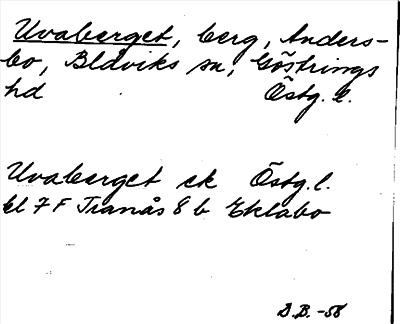 Uvaberget, berg, Anders-
bo, Blåviks sn, Göstrings
hd Östg. l.
Uvaberget ek Östg. l.
bl 7 F Tranås 8 b Eklabo
D.B. -58